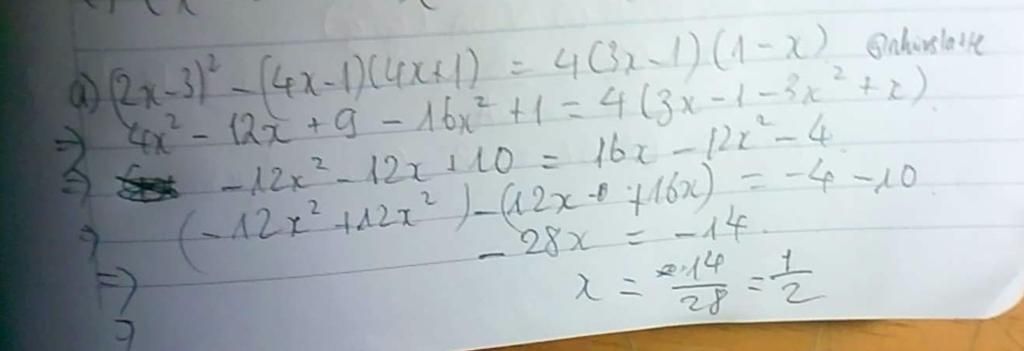 a) (2x-3)² - (4x-1)(4x+1) = 4(3x-1)(1-x)
=> 4x² - 12x + 9 - 16x² + 1 = 4(3x-1-3x²+x)
=> -12x² - 12x + 10 = 16x - 12x² - 4
(-12x² + 12x²) - (12x + 16x) = -4 - 10
=> -28x = -14
x = 14/28 = 1/2